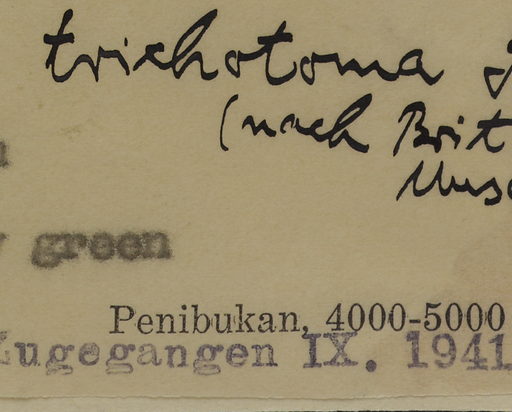 trichotoma
(nach Brit
Mus
green
Penibukan, 4000-5000
Zugegangen IX. 1941